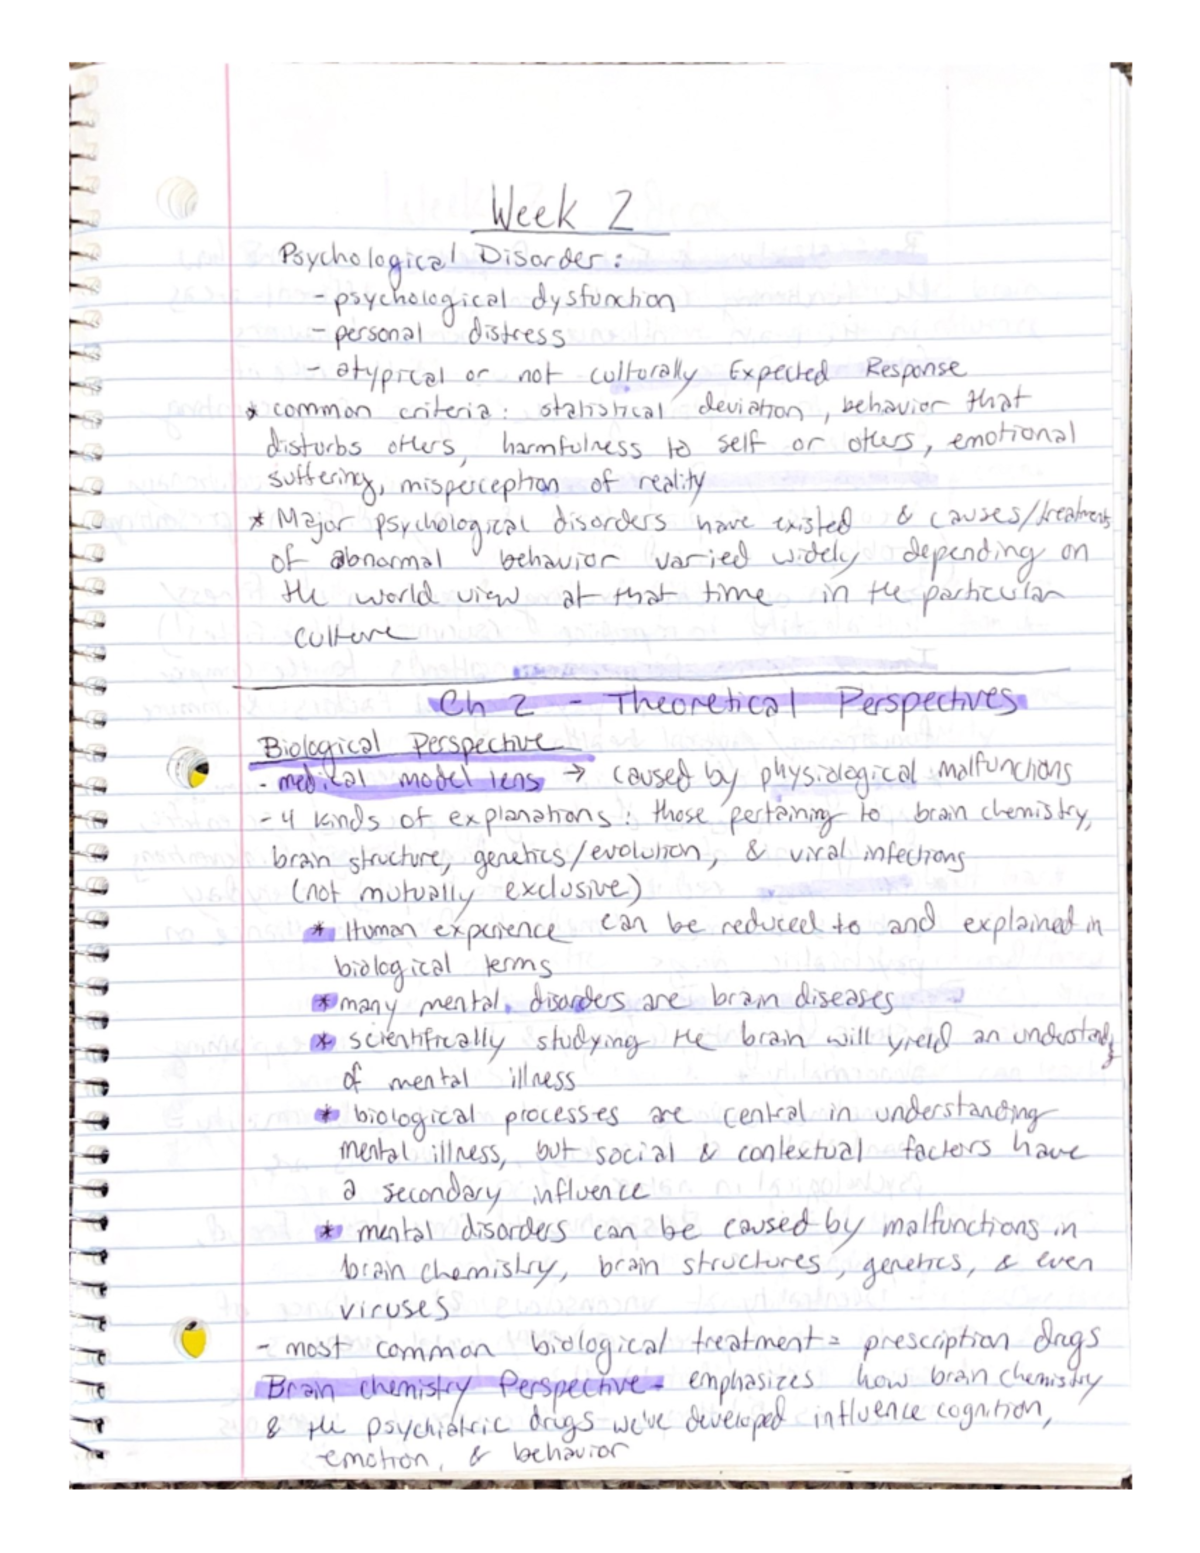 Week 2
Psychological Disorder:
- psychological dysfunction
- personal distress
- atypical or not culturally Expected Response
* common criteria: statistical deviation, behavior that
disturbs others, harmfulness to self or others, emotional
suffering, misperception of reality
* Major psychological disorders have existed & causes/treatments
of abnormal behavior varied widely depending on
the world view at that time in the particular
culture
Ch 2 - Theoretical Perspectives
Biological Perspective
- medical model lens → caused by physiological malfunctions
- 4 kinds of explanations: those pertaining to brain chemistry,
brain structure, genetics/evolution, & viral infections
(not mutually exclusive)
* Human experience can be reduced to and explained in
biological terms
* many mental disorders are brain diseases
* scientifically studying the brain will yield an understanding
of mental illness
* biological processes are central in understanding
mental illness, but social & contextual factors have
a secondary influence
* mental disorders can be caused by malfunctions in
brain chemistry, brain structures, genetics, & even
viruses
- most common biological treatment = prescription drugs
Brain chemistry Perspective - emphasizes how brain chemistry
& the psychiatric drugs we've developed influence cognition,
emotion, & behavior